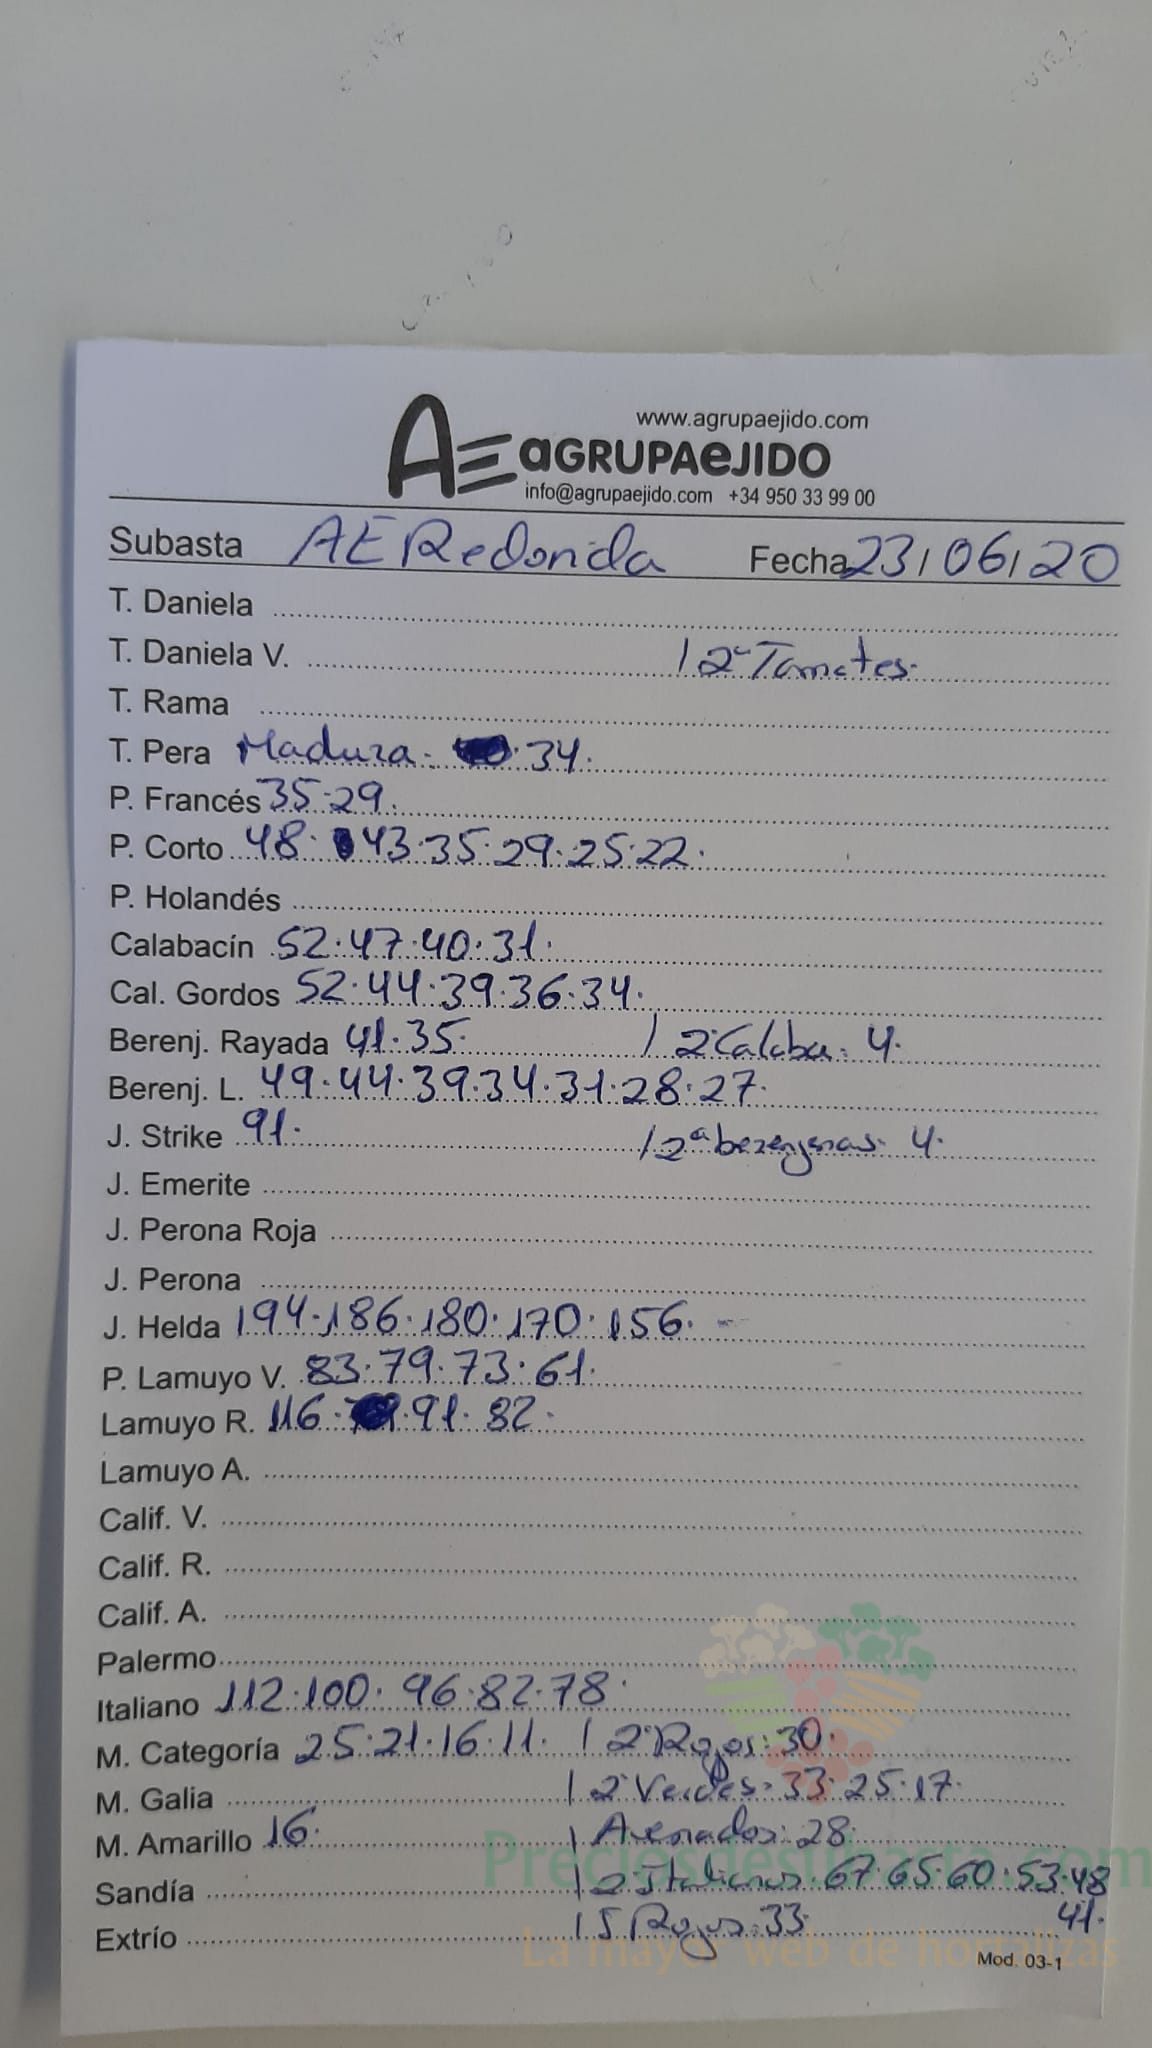 www.agrupaejido.com
AE aGRUPAeJIDO
info@agrupaejido.com +34 950 33 99 00
Subasta AE Redonda Fecha 23/06/20
T. Daniela
T. Daniela V. / 2ª Tomates.
T. Rama
T. Pera Madura. 34.
P. Francés 35.29.
P. Corto 48. 43.35.29.25.22.
P. Holandés
Calabacín 52.47.40.31.
Cal. Gordos 52.44.39.36.34.
Berenj. Rayada 41.35. / 2ª Calaba. 4.
Berenj. L. 49.44.39.34.31.28.27.
J. Strike 91. / 2ª berenjenas. 4.
J. Emerite
J. Perona Roja
J. Perona
J. Helda 194.186.180.170.156.
P. Lamuyo V. 83.79.73.61.
Lamuyo R. 116. 91. 82.
Lamuyo A.
Calif. V.
Calif. R.
Calif. A.
Palermo
Italiano 112.100. 96.82.78.
M. Categoría 25.21.16.11. / 2ª Rojos: 30.
M. Galia / 2ª Verdes: 33.25.17.
M. Amarillo 16. / Asenados: 28.
Sandía / 2ª Italianos. 67.65.60.53.48
41.
Extrío / 5 Rojos: 33.
Preciosdesubasta.com
La mayor web de hortalizas
Mod. 03-1